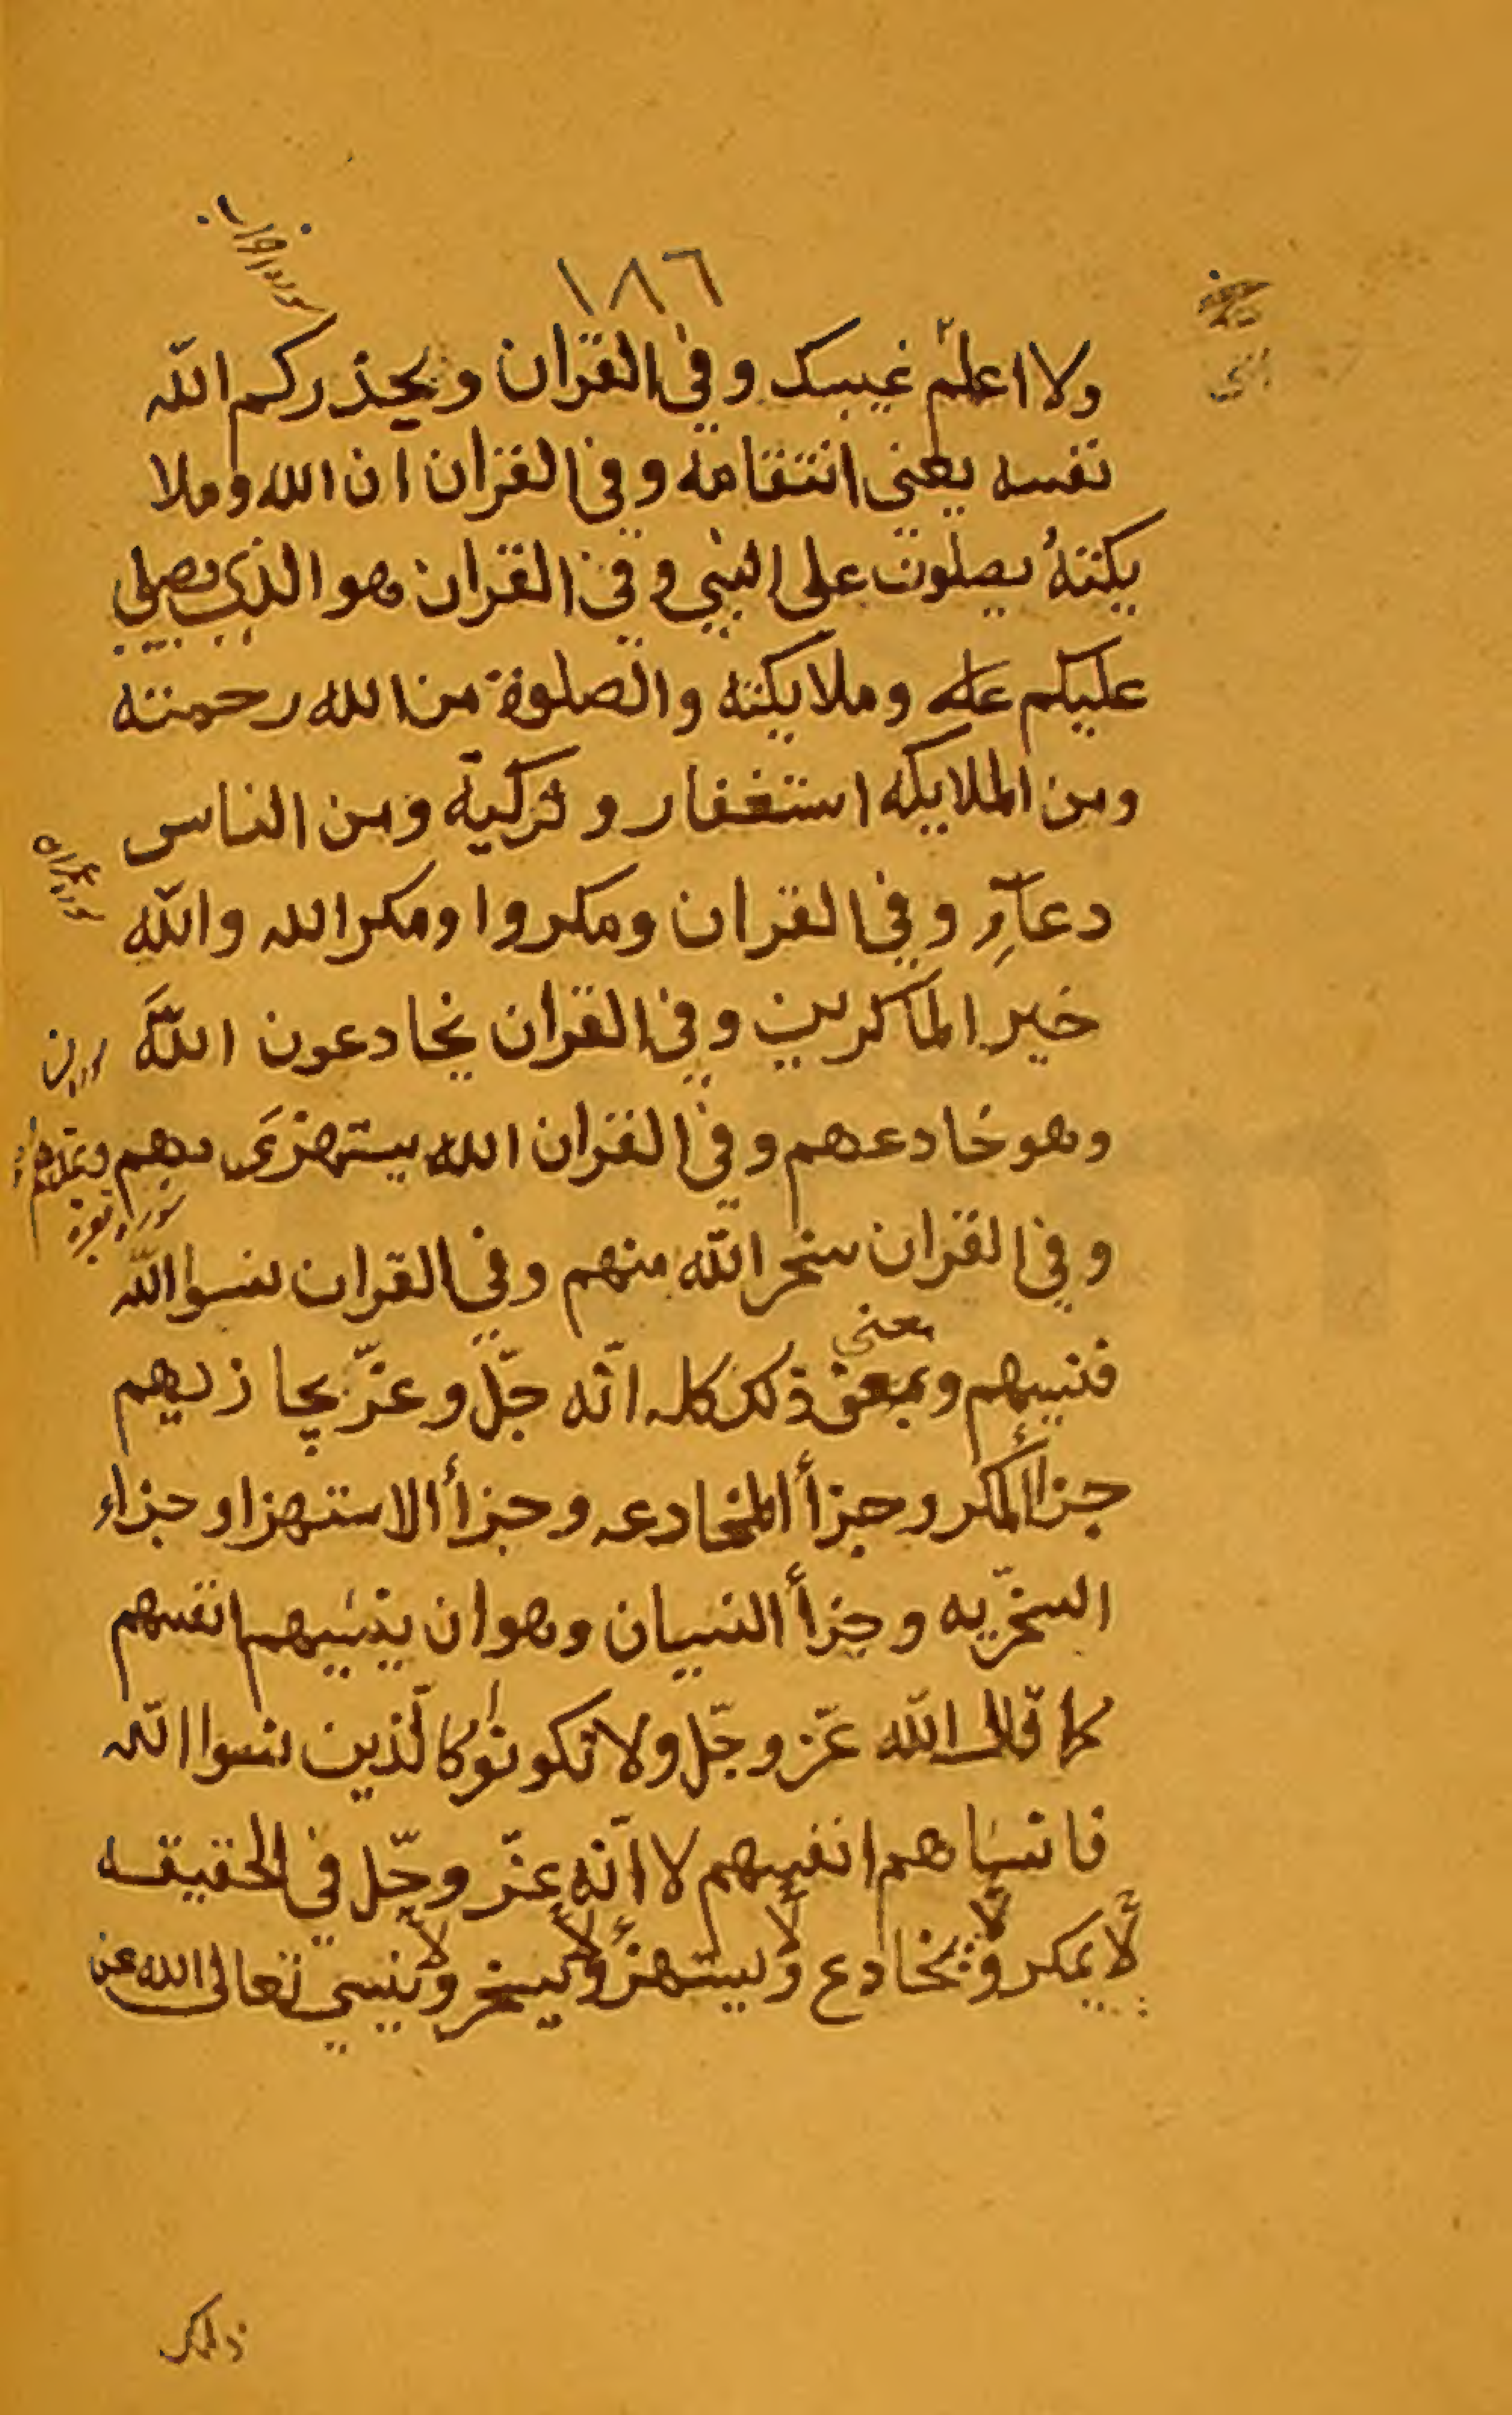 ١٨٦
ولا اعلم غيبك وفى القران ويحذركم الله
نفسه يعنى انتقامه وفى القران ان الله وملا
يكته يصلون على النبي وفى القران هو الذى يصلي
عليكم وملايكته والصلوة من الله رحمته
ومن الملايكه استغفار و تزكية ومن الناس
دعآء وفى القران ومكروا ومكر الله والله
خير الماكرين وفى القران يخادعون الله
وهو خادعهم وفى القران الله يستهزى بهم
وفى القران سخر الله منهم وفى القران نسوا الله
فنسيهم وبمعنى ذلك كله انّه جلّ وعزّ يجازيهم
معنى
جزأ المكر وجزأ المخادعه وجزأ الاستهزا وجزاء
السخريّه وجزأ النسيان وهو ان ينسيهم انفسهم
كما قال الله عزّ وجلّ ولا تكونوا كالّذين نسوا الله
فانساهم انفسهم لا انّه عزّ وجلّ في الحقيقه
لا يمكر ولا يخادع ولا يستهزأ ولا يسخر ولا ينسي تعالى الله عن
ذلك